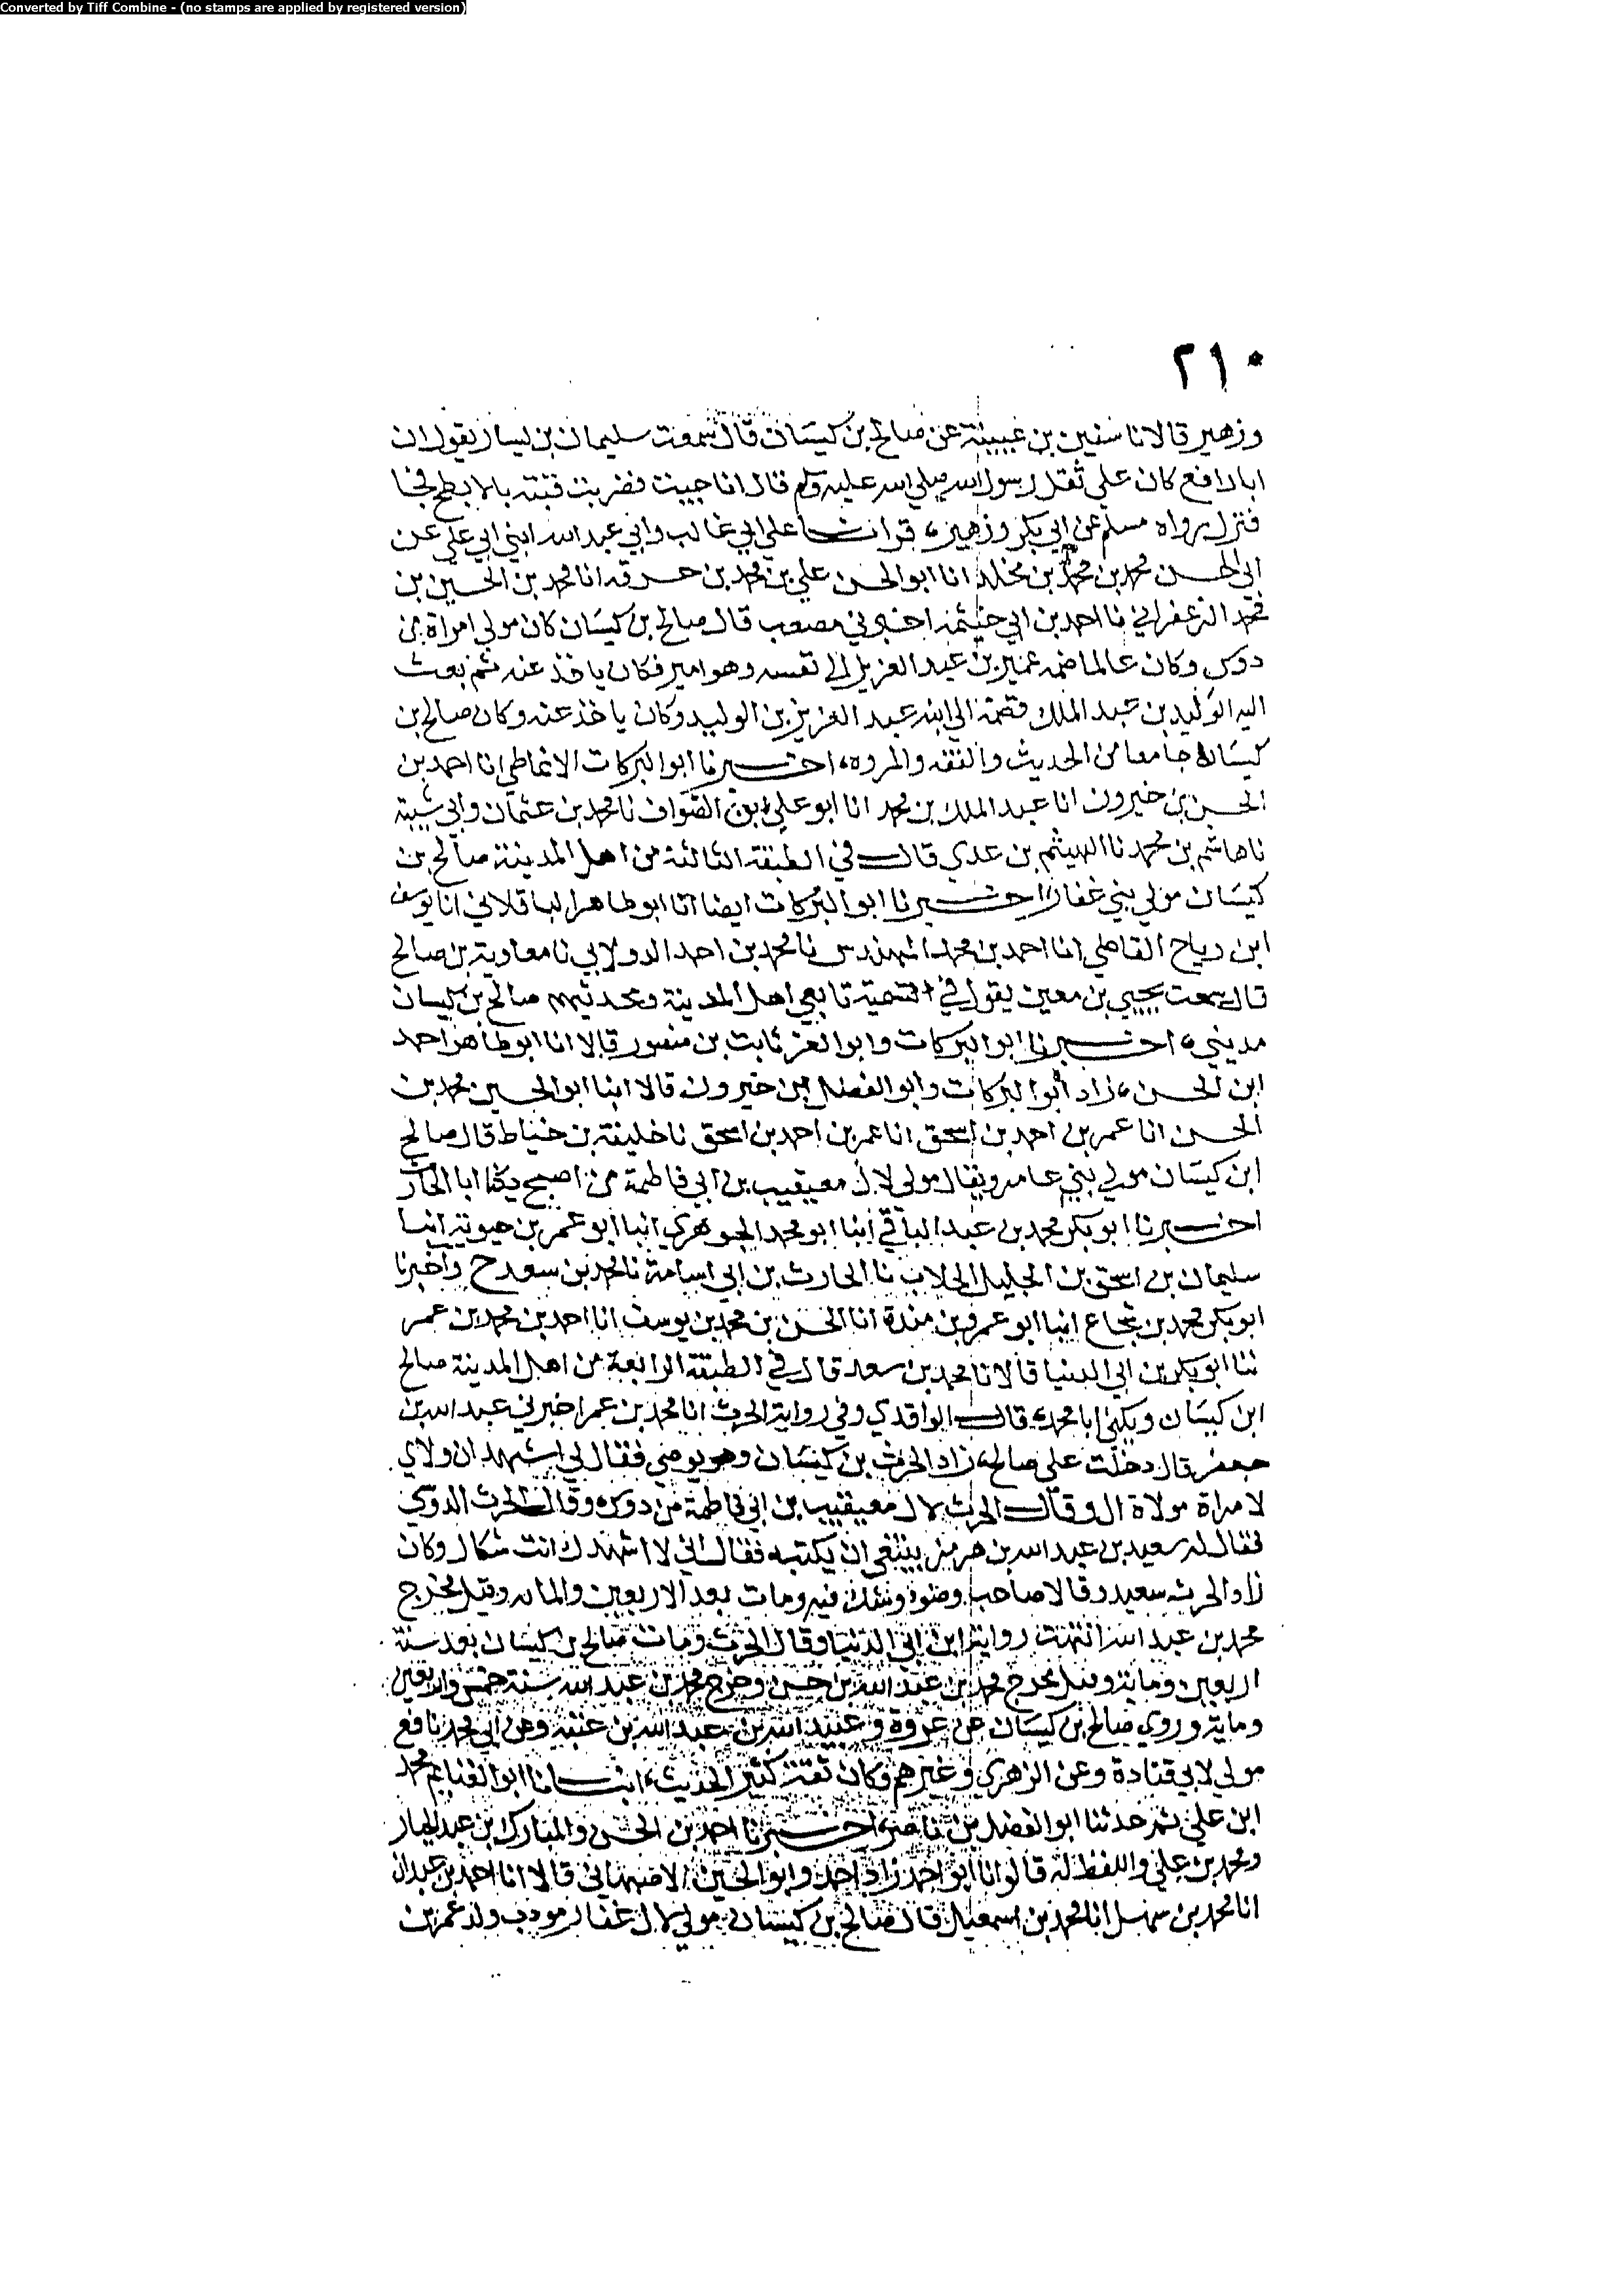 Converted by Tiff Combine - (no stamps are applied by registered version)
٢١٠
وزهير قالا نا سفين بن عيينة عن صالح بن كيسان قال سمعت سليمان بن يسار يقول ان
ابا رافع كان علي ثقل رسول الله صلي الله عليه وسلم قال انا جيت فضربت قبته بالابطح فجا
فنزل رواه مسلم عن ابي بكر وزهير، قرات علي ابي غالب وابي عبد الله ابني ابي علي عن
ابي الحسن محمد بن محمد بن مخلد انا ابو الحسن علي بن محمد بن خزفه انا محمد بن الحسين بن
محمد الزعفراني نا احمد بن ابي خيثمه اخبرني مصعب قال صالح بن كيسان كان مولي امراة من
دوس وكان عالما ضمه عمر بن عبد العزيز الي نفسه وهو امير فكان ياخذ عنه ثم بعث
اليه الوليد بن عبد الملك فضمه الي ابنه عبد العزيز بن الوليد وكان ياخذ عنه وكان صالح بن
كيسان جامعا من الحديث والفقه والمروه، اخبرنا ابو البركات الانماطي انا احمد بن
الحسن بن خيرون انا عبد الملك بن محمد انا ابو علي بن الصواف نا محمد بن عثمان وابي شيبة
نا هاشم بن محمد نا الهيثم بن عدي قال في الطبقة الثالثة من اهل المدينة صالح بن
كيسان مولي بني غفار، اخبرنا ابو البركات ايضا انا ابو طاهر الباقلاني انا يوسف
ابن رباح القاضي انا احمد بن محمد المهندس نا محمد بن احمد الدولابي نا معاوية بن صالح
قال سمعت يحيي بن معين يقول في تسمية تابعي اهل المدينة ومحدثيهم صالح بن كيسان
مديني، اخبرنا ابو البركات وابو العز ثابت بن منصور قالا انا ابو طاهر احمد
ابن الحسن، زاد ابو البركات وابو الفضل بن خيرون قالا ابنا ابو الحسين محمد بن
الحسن انا عمر بن احمد بن اسحق انا عمر بن احمد بن اسحق نا خليفة بن خياط قال صالح
ابن كيسان مولي بني عامر ويقال مولي لال معيقيب بن ابي فاطمة من اصبح يكنا ابا الحارث
اخبرنا ابو بكر محمد بن عبد الباقي ابنا ابو محمد الجوهري انبا ابو عمر بن حيوية انبا
سليمان بن اسحق بن الجليل الجلاب نا الحارث بن ابي اسامة نا محمد بن سعد ح واخبرنا
ابو بكر محمد بن شجاع انبا ابو عمرو بن مندة انا الحسن بن محمد بن يوسف انا احمد بن محمد بن عمر
ثنا ابو بكر بن ابي الدنيا قالا نا محمد بن سعد قال في الطبقة الرابعة من اهل المدينة صالح
ابن كيسان ويكني ابا محمد، قال الواقدي وفي رواية الحرث انا محمد بن عمر اخبرني عبد الله بن
جعفر قال دخلت علي صالح، زاد الحرث بن كيسان وهو يوصي فقال لي اشهد ان ولاي
لامراة مولاة ال وقال الحرث لال معيقيب بن ابي فاطمة من دوس، وقال الحرث الدوسي
فقال له سعيد بن عبد الله بن هرمز ينبغي ان يكتبه فقال اني لا اشهدك انت شكاك وكان
زاد الحرث سعيد وقالا صاحب وضوء وشك فيه ومات بعد الاربعين والمايه وقبل مخرج
محمد بن عبد الله انتهت رواية ابن ابي الدنيا وقال الحرث ومات صالح بن كيسان بعد سنة
اربعين وماية وقبل مخرج محمد بن عبد الله بن حسن وخرج محمد بن عبد الله سنة خمس واربعين
وماية وروي صالح بن كيسان عن عروة وعبيد الله بن عبد الله بن عتبة وعن ابي محمد نافع
مولي لابي قتادة وعن الزهري وغيرهم وكان ثقة كثير الحديث، انبانا ابو الغنايم محمد
ابن علي ثم حدثنا ابو الفضل بن ناصر، اخبرنا احمد بن الحسن والمبارك بن عبد الجبار
ومحمد بن علي واللفظ له قالوا انا ابو احمد زاد احمد وابو الحسين الاصبهاني قالا انا احمد بن عبدان
انا محمد بن سهل انا محمد بن اسمعيل قال صالح بن كيسان مولي لال غفار مودب ولد عمر بن